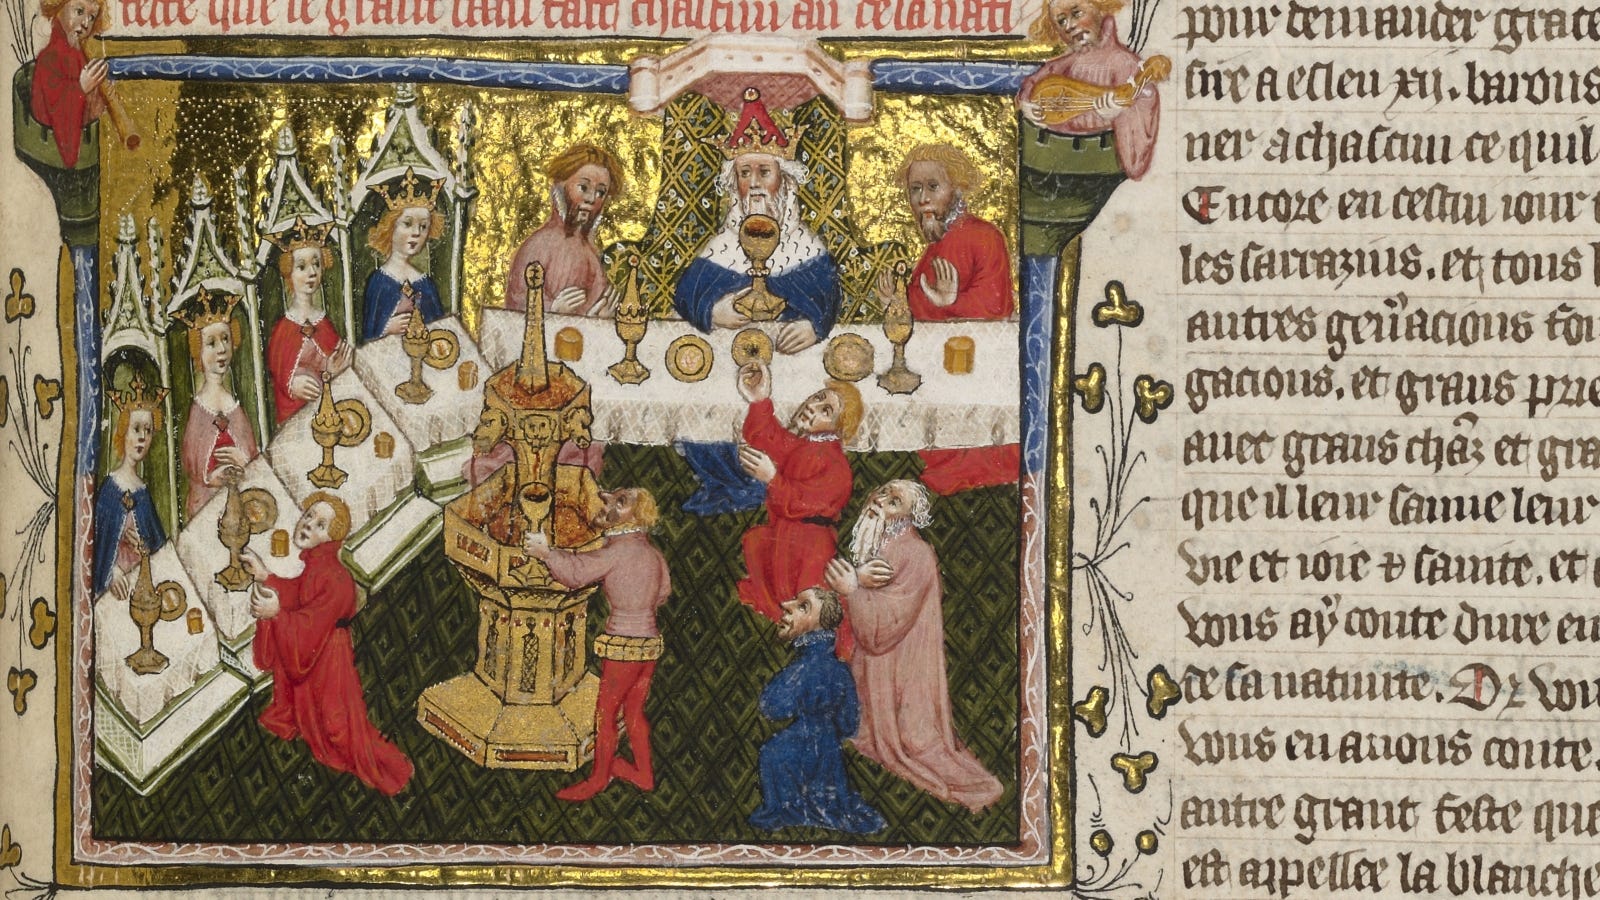 feste que le grant kaan fait chascun an de sa nati
pour demander grace
sire a esleu xij. barons
ner a chascun ce quil
Encore en cestui iour
les sarrazins. et tous
autres generacions font
gacions. et grans prie
auec grans chanz et gra
que il leur sauue leur
vie et ioie et sainte. et
vous ay conte dure en
de sa natiuite. Or vou
vous en auons conte.
autre grant feste que
est appellee la blanche